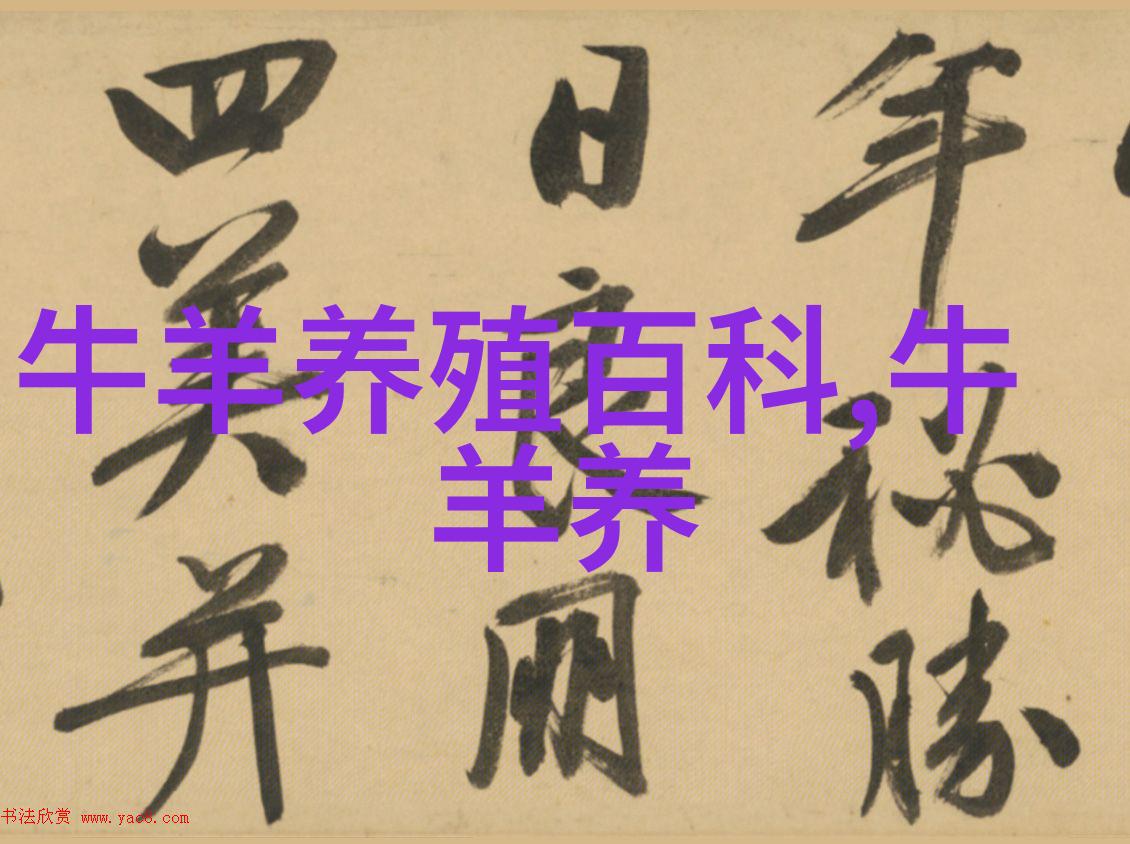 年秘勝
日良朋
四美并
牛羊养殖百科,牛
羊养
书法欣赏 www.yac8.com